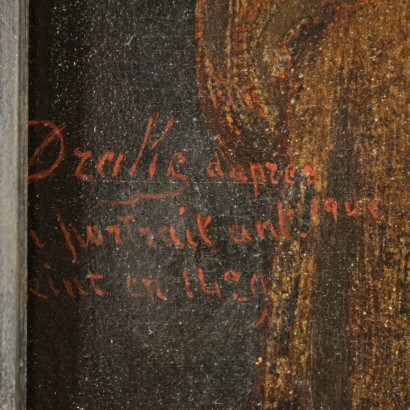 Dralle d'apres
portrait antique
eint en 1429